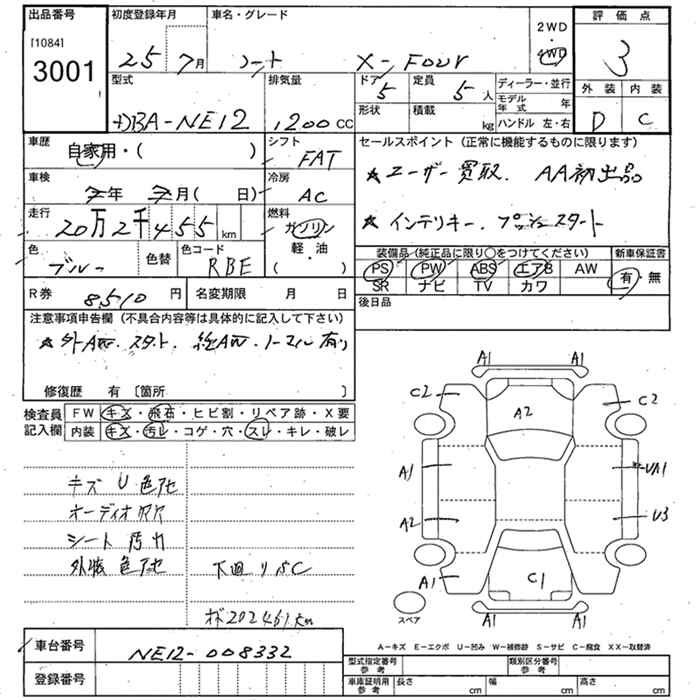 出品番号
[1084]
3001
初度登録年月
25 7月
車名・グレード
ノート X-FOUR
2WD
・
4WD
評価点
3
外装 内装
D C
型式
DBA-NE12
排気量
1200 CC
ドア
5
定員
5 人
形状
積載
kg
ディーラー・並行
モデル年式 年
ハンドル 左・右
車歴
自家用・( )
シフト
FAT
車検
年 月( 日)
冷房
AC
走行
20万2千455 km
燃料
ガソリン
軽・油
( )
色
ブルー
色替
色コード
RBE
セールスポイント (正常に機能するものに限ります)
★ユーザー買取. AA初出品
★インテリキー. プッシュスタート
装備品(純正品に限り○をつけてください)
PS PW ABS エアB AW
SR ナビ TV カワ
新車保証書
有・無
後日品
R券 8510 円
名変期限 月 日
注意事項申告欄 (不具合内容等は具体的に記入して下さい)
★外AW. スタト. 純AW. ノーマル有り
修復歴 有 〔箇所 〕
検査員記入欄
FW キズ・飛石・ヒビ割・リペア跡・X要
内装 キズ・汚レ・コゲ・穴・スレ・キレ・破レ
キズ U 色アセ
オーディオ穴
シート汚れ
外装色アセ
下廻り サビC
202461km
A1 A1
C2 C2
A2
A1 UA1
A2 U3
A1 C1
A1 A1
スペア
A-キズ E-エクボ U-凹み W-補修跡 S-サビ C-腐食 XX-取替済
車台番号 NE12-008332
登録番号
型式指定番号 参考
類別区分番号 参考
車庫証明用 参考
長さ cm
幅 cm
高さ cm